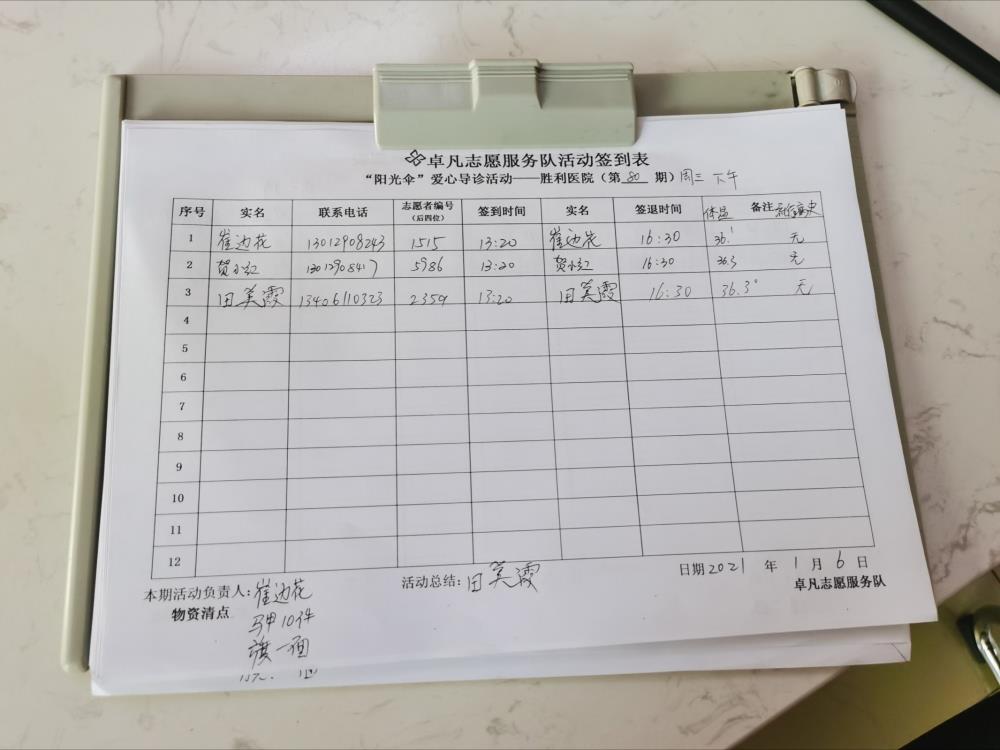 卓凡志愿服务队活动签到表
“阳光伞”爱心导诊活动——胜利医院（第 80 期）周三 下午
序号 实名 联系电话 志愿者编号（后四位） 签到时间 实名 签退时间 体温 备注
1 崔边花 13012908243 1515 13:20 崔边花 16:30 36.1 无
2 贺小红 13012908417 5986 13:20 贺小红 16:30 36.3 无
3 田美霞 13406110323 2359 13:20 田美霞 16:30 36.3° 无
4
5
6
7
8
9
10
11
12
本期活动负责人：崔边花 活动总结：田美霞 日期 2021 年 1 月 6 日
物资清点 卓凡志愿服务队
马甲10件
旗一面